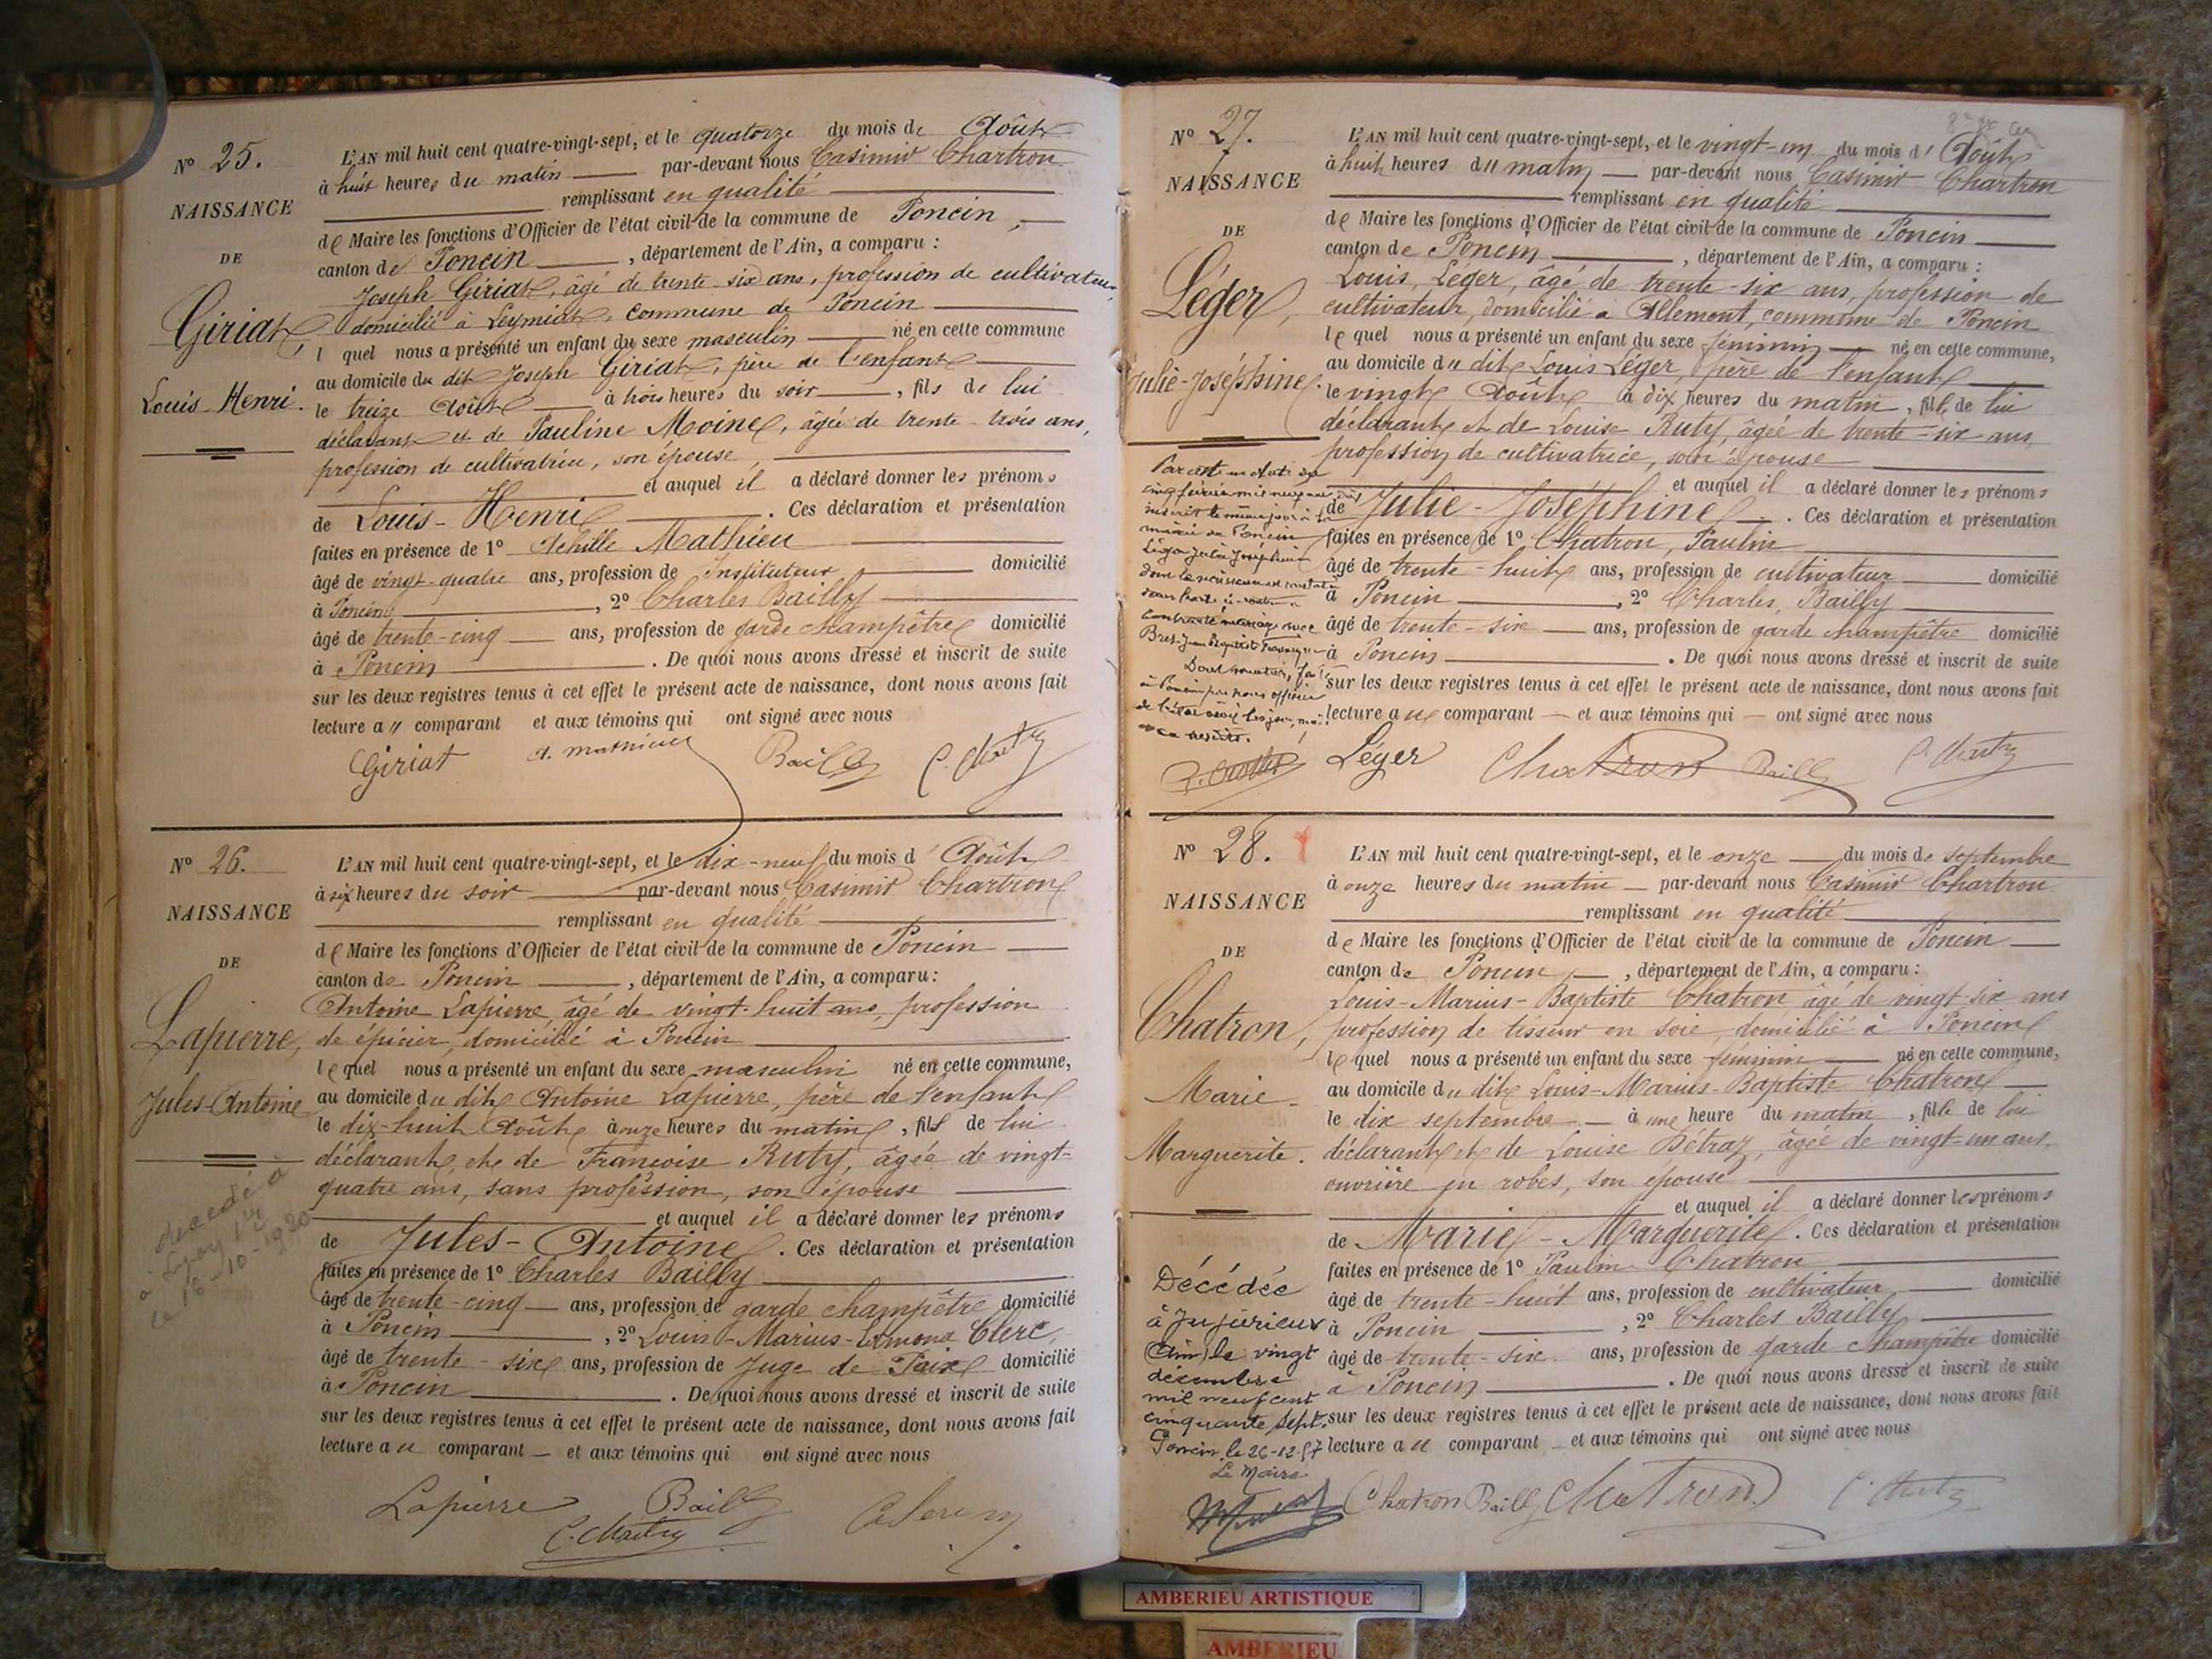 N° 25.
NAISSANCE
DE
Giriat,
Louis-Henri.
L'AN mil huit cent quatre-vingt-sept, et le quatorze du mois de Août
à huit heures du matin par-devant nous Casimir Chartron
remplissant en qualité
de Maire les fonctions d'Officier de l'état civil de la commune de Poncin,
canton de Poncin, département de l'Ain, a comparu :
Joseph Giriat, âgé de trente-six ans, profession de cultivateur,
domicilié à Leymiat, commune de Poncin
l quel nous a présenté un enfant du sexe masculin né en cette commune
au domicile du dit Joseph Giriat, père de l'enfant
le treize Août à trois heures du soir, fils de lui
déclarant et de Pauline Moine, âgée de trente-trois ans,
profession de cultivatrice, son épouse,
et auquel il a déclaré donner les prénoms
de Louis-Henri. Ces déclaration et présentation
faites en présence de 1° Achille Mathieu
âgé de vingt-quatre ans, profession de Instituteur domicilié
à Poncin, 2° Charles Bailly
âgé de trente-cinq ans, profession de garde champêtre domicilié
à Poncin. De quoi nous avons dressé et inscrit de suite
sur les deux registres tenus à cet effet le présent acte de naissance, dont nous avons fait
lecture au comparant et aux témoins qui ont signé avec nous
Giriat A. Mathieu Bailly
N° 26.
NAISSANCE
DE
Lapierre,
Jules-Antoine
décédé à
Lyon
le 16-10-1920
L'AN mil huit cent quatre-vingt-sept, et le dix-neuf du mois d' Août
à six heures du soir par-devant nous Casimir Chartron
remplissant en qualité
de Maire les fonctions d'Officier de l'état civil de la commune de Poncin
canton de Poncin, département de l'Ain, a comparu :
Antoine Lapierre, âgé de vingt-huit ans, profession
de épicier, domicilié à Poncin
lequel nous a présenté un enfant du sexe masculin né en cette commune,
au domicile du dit Antoine Lapierre, père de l'enfant
le dix-huit Août à onze heures du matin, fils de lui
déclarant, et de Françoise Ruty, âgée de vingt-
quatre ans, sans profession, son épouse
et auquel il a déclaré donner les prénoms
de Jules-Antoine. Ces déclaration et présentation
faites en présence de 1° Charles Bailly
âgé de trente-cinq ans, profession de garde champêtre domicilié
à Poncin, 2° Louis-Marius-Edmond Clerc,
âgé de trente-six ans, profession de Juge de Paix domicilié
à Poncin. De quoi nous avons dressé et inscrit de suite
sur les deux registres tenus à cet effet le présent acte de naissance, dont nous avons fait
lecture au comparant et aux témoins qui ont signé avec nous
Lapierre Bailly
N° 27.
NAISSANCE
DE
Léger,
Julie-Joséphine.
L'AN mil huit cent quatre-vingt-sept, et le vingt-un du mois d' Août
à huit heures du matin par-devant nous Casimir Chartron
remplissant en qualité
de Maire les fonctions d'Officier de l'état civil de la commune de Poncin
canton de Poncin, département de l'Ain, a comparu :
Louis, Léger, âgé de trente-six ans, profession de
cultivateur, domicilié à Allement, commune de Poncin
lequel nous a présenté un enfant du sexe féminin né en cette commune,
au domicile du dit Louis Léger, père de l'enfant
le vingt Août à dix heures du matin, fille de lui
déclarant et de Louise Ruty, âgée de trente-six ans,
profession de cultivatrice, son épouse
et auquel il a déclaré donner les prénoms
de Julie-Joséphine. Ces déclaration et présentation
faites en présence de 1° Chatron, Paulin
âgé de trente-huit ans, profession de cultivateur domicilié
à Poncin, 2° Charles, Bailly
âgé de trente-six ans, profession de garde champêtre domicilié
à Poncin. De quoi nous avons dressé et inscrit de suite
sur les deux registres tenus à cet effet le présent acte de naissance, dont nous avons fait
lecture au comparant et aux témoins qui ont signé avec nous
Par acte en date du
cinq février mil neuf
inscrit le même jour à la
mairie de Poncin
Léger Julie Joséphine
dont la naissance est constatée
dans l'acte ci-contre a
contracté mariage avec
Dont mention, faite
à Poncin par nous officier
de l'état civil les jour, mois
Léger Chatron Bailly
N° 28.
NAISSANCE
DE
Chatron,
Marie-
Marguerite.
L'AN mil huit cent quatre-vingt-sept, et le onze du mois de septembre
à onze heures du matin par-devant nous Casimir Chartron
remplissant en qualité
de Maire les fonctions d'Officier de l'état civil de la commune de Poncin
canton de Poncin, département de l'Ain, a comparu :
Louis-Marius-Baptiste Chatron, âgé de vingt-six ans
profession de tisseur en soie, domicilié à Poncin
lequel nous a présenté un enfant du sexe féminin né en cette commune,
au domicile du dit Louis-Marius-Baptiste Chatron
le dix septembre à une heure du matin, fille de lui
déclarant et de Louise Bétraz, âgée de vingt-un ans,
ouvrière en robes, son épouse
et auquel il a déclaré donner les prénoms
de Marie-Marguerite. Ces déclaration et présentation
faites en présence de 1° Paulin Chatron
âgé de trente-huit ans, profession de cultivateur domicilié
à Poncin, 2° Charles Bailly
âgé de trente-six ans, profession de garde champêtre domicilié
à Poncin. De quoi nous avons dressé et inscrit de suite
sur les deux registres tenus à cet effet le présent acte de naissance, dont nous avons fait
lecture au comparant et aux témoins qui ont signé avec nous
Décédée
à Jujurieux
(Ain) le vingt
décembre
mil neuf cent
cinquante sept.
Poncin le 26-12-57
Le Maire
Chatron Bailly Chatron
AMBERIEU ARTISTIQUE
AMBERIEU